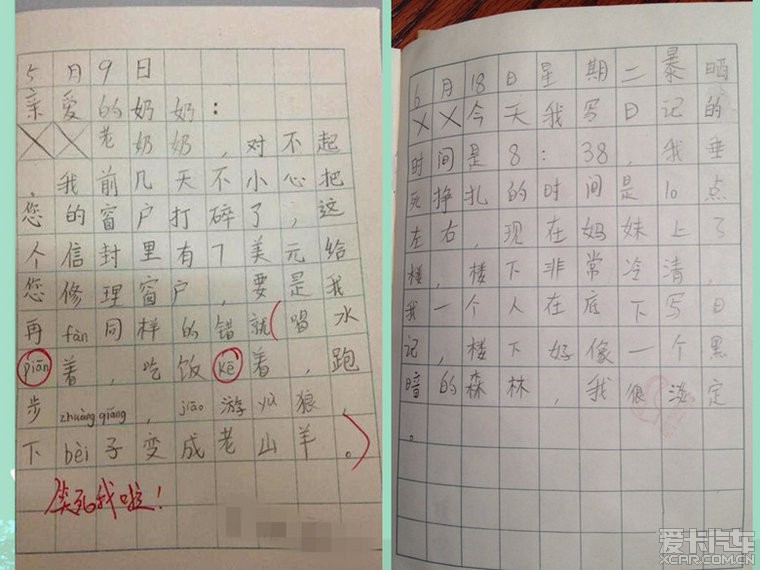 5月9日
亲爱的奶奶：
老奶奶，对不起
，我前几天不小心把
您的窗户打碎了，这
个信封里有7美元给
您修理窗户，要是我
再fàn同样的错就（喝水
piān着，吃饭kē着，跑
步zhuàng qiáng，jiāo游yù狼，
下bèi子变成老山羊。）
笑死我啦！
6月18日星期二暴晒
XX今天我写日记的
时间是8：38，我垂
死挣扎的时间是10点
左右，现在妈妹上了
楼，楼下非常冷清，
我一个人在底下写日
记，楼下好像一个黑
暗的森林，我很淡定
。
爱卡汽车
XCAR.COM.CN